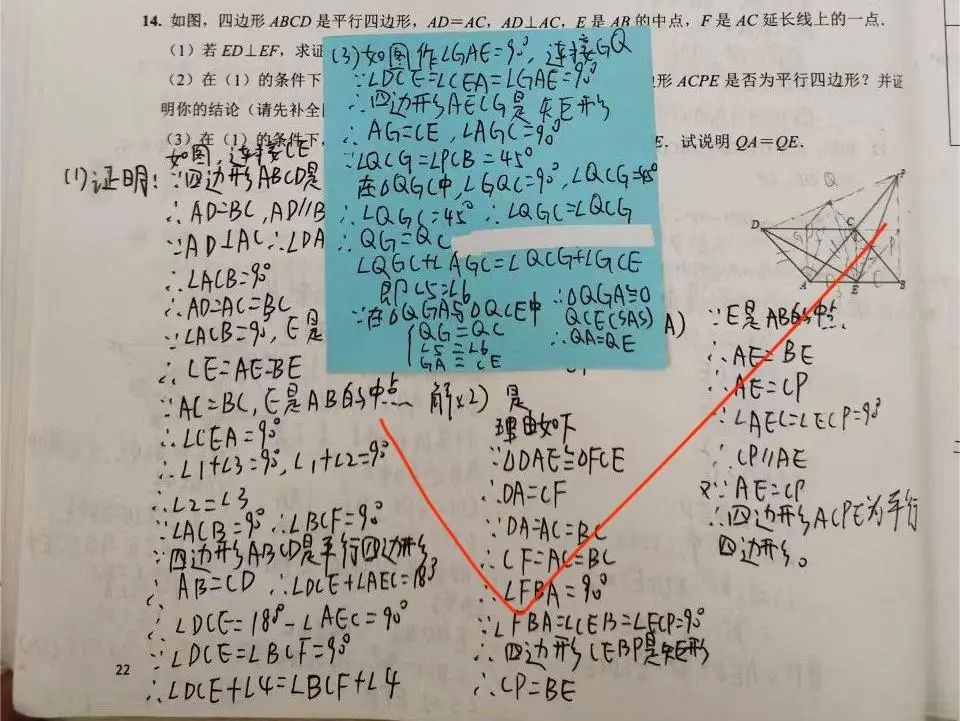 14. 如图，四边形 ABCD 是平行四边形，AD＝AC，AD⊥AC，E 是 AB 的中点，F 是 AC 延长线上的一点．
（1）若 ED⊥EF，求证
（2）在（1）的条件下
形 ACPE 是否为平行四边形？并证
明你的结论（请先补全
（3）在（1）的条件下，
E．试说明 QA＝QE．
(3)如图作∠GAE=90°，连接GQ
∵∠DCE=∠CEA=∠GAE=90°
∴四边形AECG是矩形
∴AG=CE，∠AGC=90°
∵∠QCG=∠PCB=45°
在△QGC中，∠GQC=90°，∠QCG=45°
∴∠QGC=45° ∴∠QGC=∠QCG
∴QG=QC
∠QGC+∠AGC=∠QCG+∠GCE
即∠5=∠6
∵在△QGA与△QCE中
QG=QC
∠5=∠6
GA=CE
∴△QGA≌△
QCE(SAS)
∴QA=QE
如图，连接CE
(1)证明：∵四边形ABCD是
∴AD=BC，AD//B
∵AD⊥AC ∴∠DA
∴∠ACB=90°
∴AD=AC=BC
∵∠ACB=90°，E是
∴CE=AE=BE
∵AC=BC，E是AB的中点
∴∠CEA=90°
∴∠1+∠3=90°，∠1+∠2=90°
∴∠2=∠3
∵∠ACB=90° ∴∠BCF=90°
∵四边形ABCD是平行四边形
∴AB=CD ∴∠DCE+∠AEC=180°
∴∠DCE=180°-∠AEC=90°
∵∠DCE=∠BCF=90°
∴∠DCE+∠4=∠BCF+∠4
A)
解：(2) 是
理由如下
∵△DAE≌△FCE
∴DA=CF
∵DA=AC=BC
∴CF=AC=BC
∴∠FBA=90°
∵∠FBA=∠CEB=∠ECP=90°
∴四边形CEBP是矩形
∴CP=BE
D
Q
F
G
C
P
A
E
B
∵E是AB的中点
∴AE=BE
∴AE=CP
∵∠AEC=∠ECP=90°
∴CP//AE
又∵AE=CP
∴四边形ACPE为平行
四边形。
22